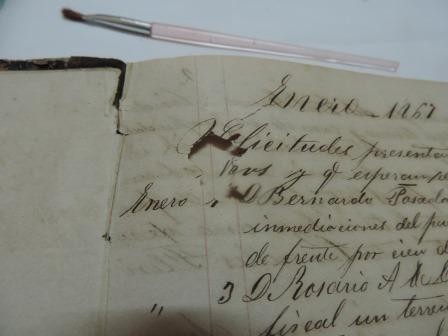 Enero 1867
Solicitudes presenta
y qᵉ esperan re
Enero D Bernardo Posada
inmediaciones del pu
de frente por cien d
" 3 D Rosario A
fiscal un terre